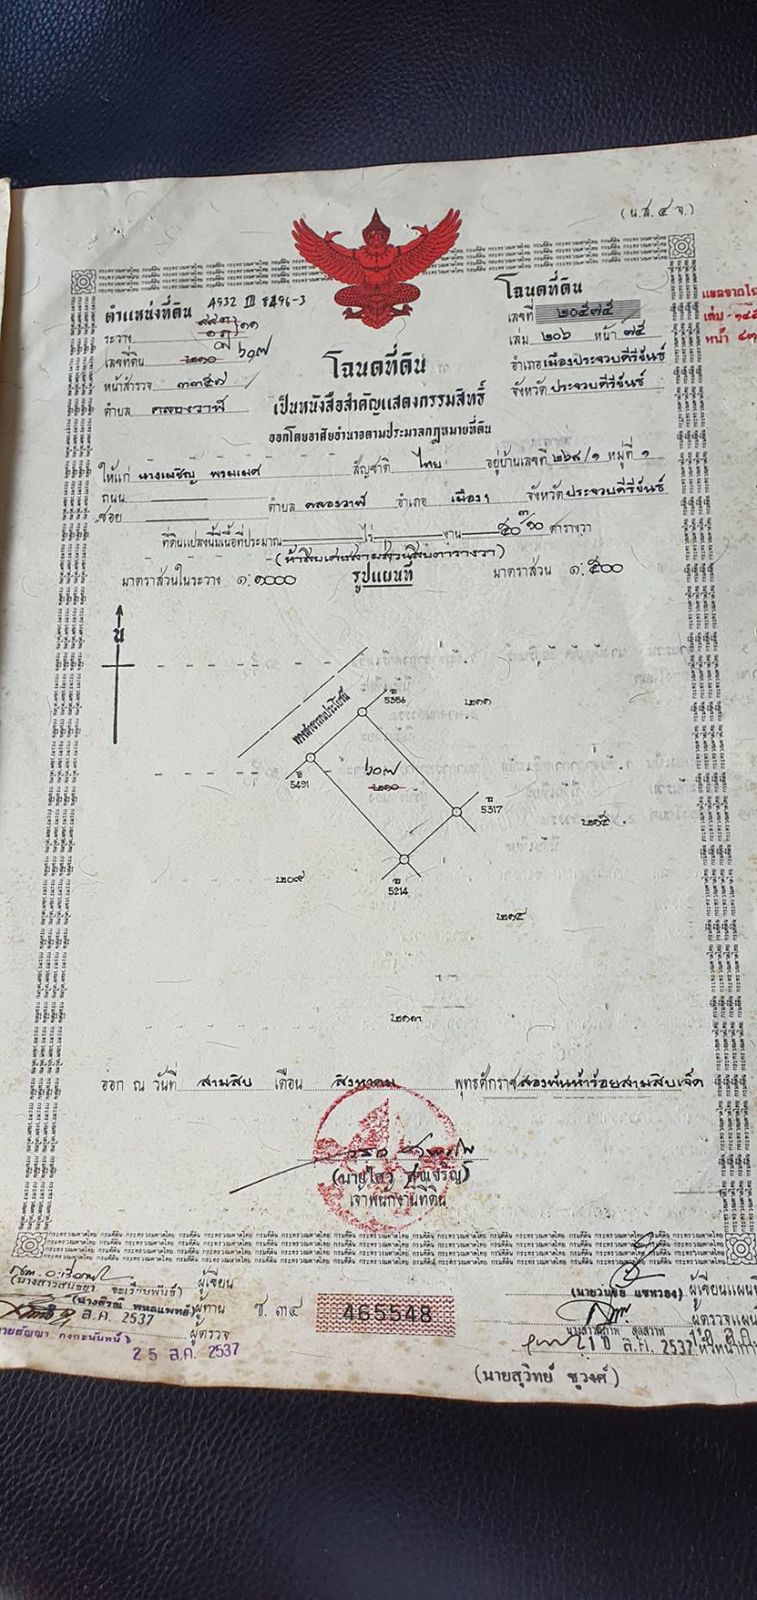 (น.ส. ๔ จ.)
ตำแหน่งที่ดิน 4932 III 8496-3
ระวาง
เลขที่ดิน ๒๑๐ ๖๐๗
หน้าสำรวจ ๓๓๕๗
ตำบล คลองวาฬ
โฉนดที่ดิน
เลขที่ ๒๐๕๗๕
เล่ม ๒๐๖ หน้า ๗๕
อำเภอ เมืองประจวบคีรีขันธ์
จังหวัด ประจวบคีรีขันธ์
เล่ม
หน้า
โฉนดที่ดิน
เป็นหนังสือสำคัญแสดงกรรมสิทธิ์
ออกโดยอาศัยอำนาจตามประมวลกฎหมายที่ดิน
ให้แก่ นางเผชิญ พรมเมศ สัญชาติ ไทย อยู่บ้านเลขที่ ๒๖๘/๑ หมู่ที่ ๑
ถนน
ซอย ตำบล คลองวาฬ อำเภอ เมืองฯ จังหวัด ประจวบคีรีขันธ์
ที่ดินแปลงนี้มีเนื้อที่ประมาณ ไร่ งาน ๕๐ ๓/๑๐ ตารางวา
(ห้าสิบเศษสามส่วนสิบตารางวา)
มาตราส่วนในระวาง ๑:๑๐๐๐ รูปแผนที่ มาตราส่วน ๑:๕๐๐
น
ทางสาธารณประโยชน์
5356
๒๑๑
5491
๖๐๗
๒๑๐
5317
๒๑๕
๒๐๙
5214
๒๑๔
๒๑๓
ออก ณ วันที่ สามสิบ เดือน สิงหาคม พุทธศักราช สองพันห้าร้อยสามสิบเจ็ด
เจ้าพนักงานที่ดิน
ผู้เขียน
ผู้ทาน
ส.ค. 2537
ผู้ตรวจ
25 ส.ค. 2537
ช. ๓๔
465548
ผู้เขียนแผนที่
ผู้ตรวจแผนที่
ส.ค. 2537
(นายสุวิทย์ ชูวงศ์)